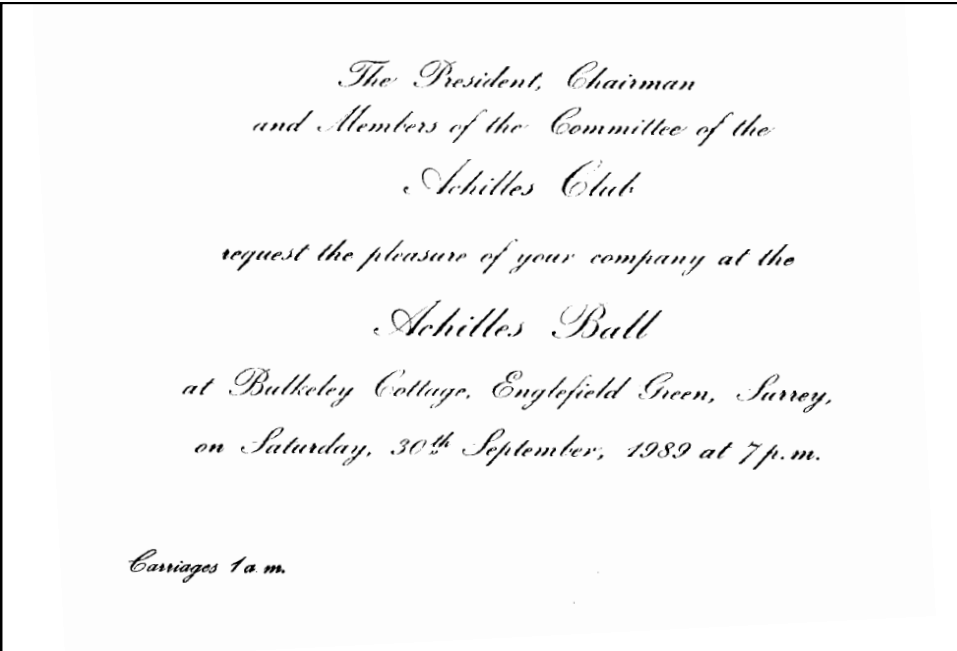 The President, Chairman
and Members of the Committee of the
Achilles Club
request the pleasure of your company at the
Achilles Ball
at Bulkeley Cottage, Englefield Green, Surrey,
on Saturday, 30th September, 1989 at 7 p.m.
Carriages 1 a.m.